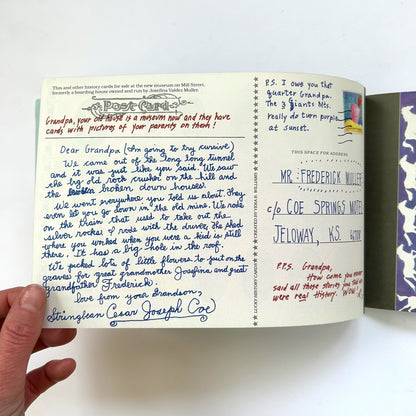 This and other history cards for sale at the new museum on Mill Street,
formerly a boarding house owned and run by Josefina Valdez Muller.
Post Card
Grandpa, your old house is a museum now and they have
cards with pictures of your parents on them!
Dear Grandpa (I'm going to try cursive)
We came out of the long long tunnel
and it was just like you said. We saw
the big old rock crusher on the hill and
the broken down houses.
We went everywhere you told us about. They
even let you go down in the old mine. We rode
on the train that used to take out the
silver rocks & rode with the driver. The shed
where you worked when you were a kid is still
there. It has a big hole in the roof.
We picked lots of little flowers to put on the
graves for great grandmother Josefina and great
grandfather Frederick.
love from your Grandson,
Stringbean Cesar Joseph Coe
LUCKY HISTORY CARDS
CREATED BY VERA B. WILLIAMS
P.S. I owe you that
quarter Grandpa.
The 3 Giants Mts.
really do turn purple
at sunset.
THIS SPACE FOR ADDRESS
MR. FREDERICK MULLER
c/o COE SPRINGS MOTEL
JELOWAY, KS.
P.P.S. Grandpa,
How come you never
said all those stories you told us
were real History.